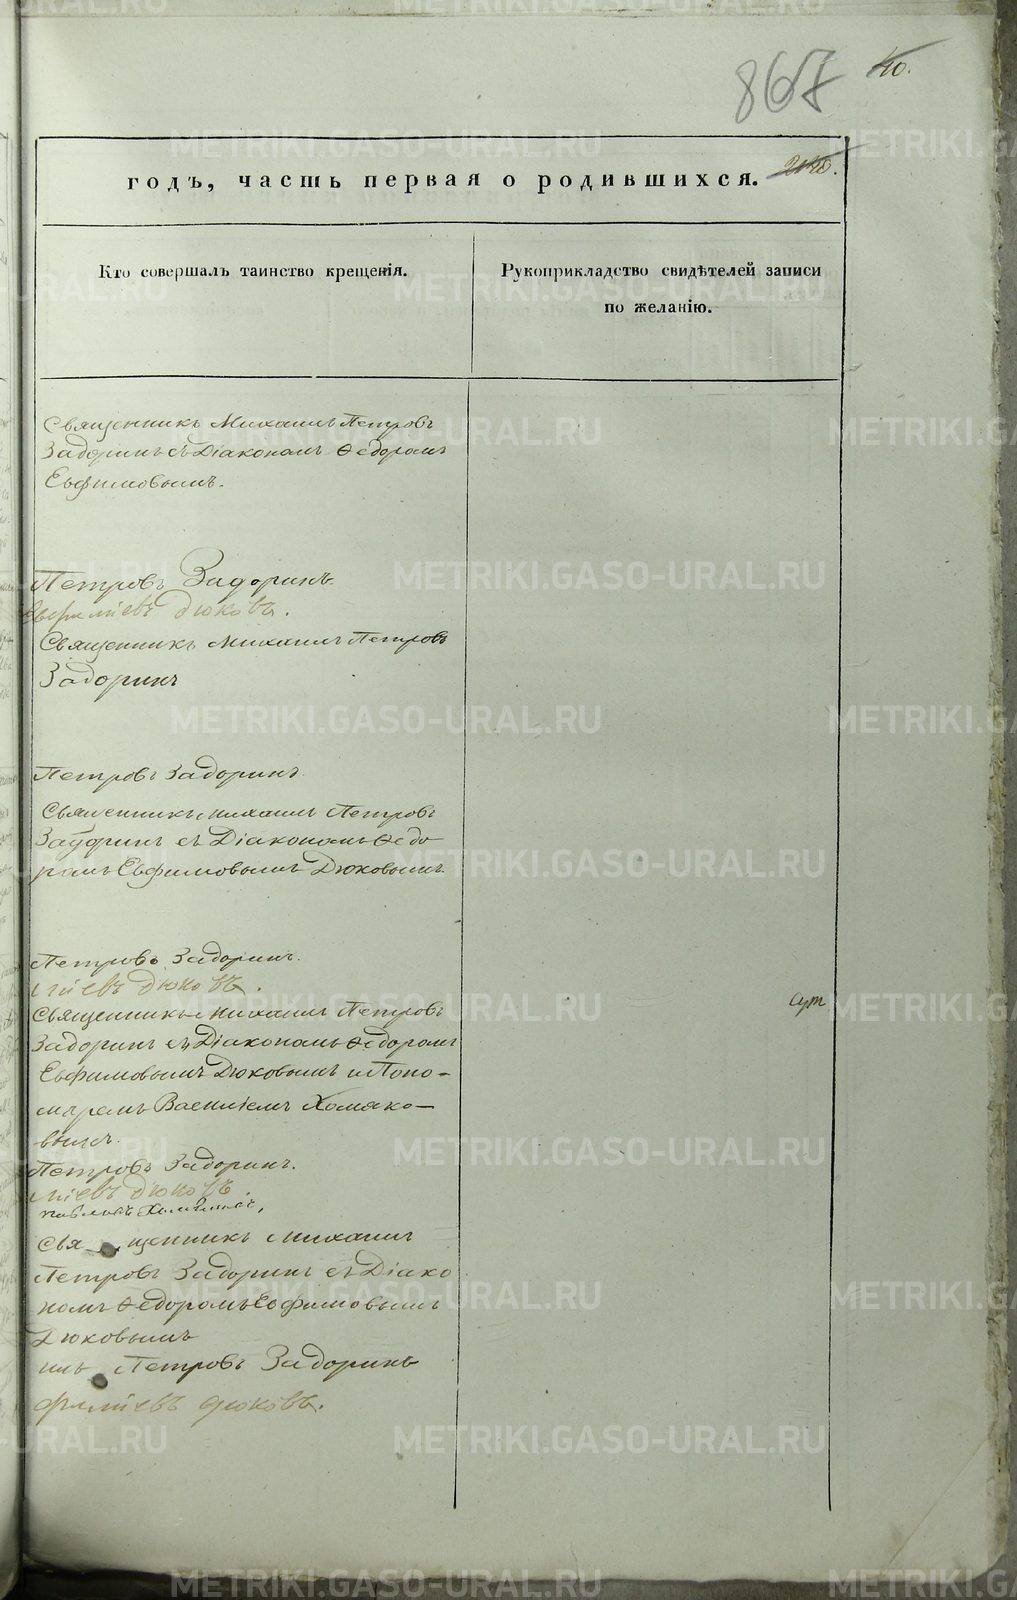 867 40.
годъ, часть первая о родившихся.
Кто совершалъ таинство крещенія.
Рукоприкладство свидѣтелей записи
по желанію.
Священникъ Михаилъ Петровъ
Задоринъ съ Діакономъ Ѳедоромъ
Евфимовымъ.
Петровъ Задоринъ.
Дюковъ.
Священникъ Михаилъ Петровъ
Задоринъ
Петровъ Задоринъ.
Священникъ Михаилъ Петровъ
Задоринъ съ Діакономъ Ѳедо
ромъ Евфимовымъ Дюковымъ.
Петровъ Задоринъ.
міевъ Дюковъ.
Священникъ Михаилъ Петровъ
Задоринъ съ Діакономъ Ѳедоромъ
Евфимовымъ Дюковымъ и Поно-
маремъ Василіемъ Хомяко-
вымъ.
Петровъ Задоринъ.
міевъ Дюковъ.
Свя щенникъ Михаилъ
Петровъ Задоринъ съ Діако
номъ Ѳедоромъ Евфимовымъ
Дюковымъ
илъ Петровъ Задоринъ
фиміевъ Дюковъ.
METRIKI.GASO-URAL.RU